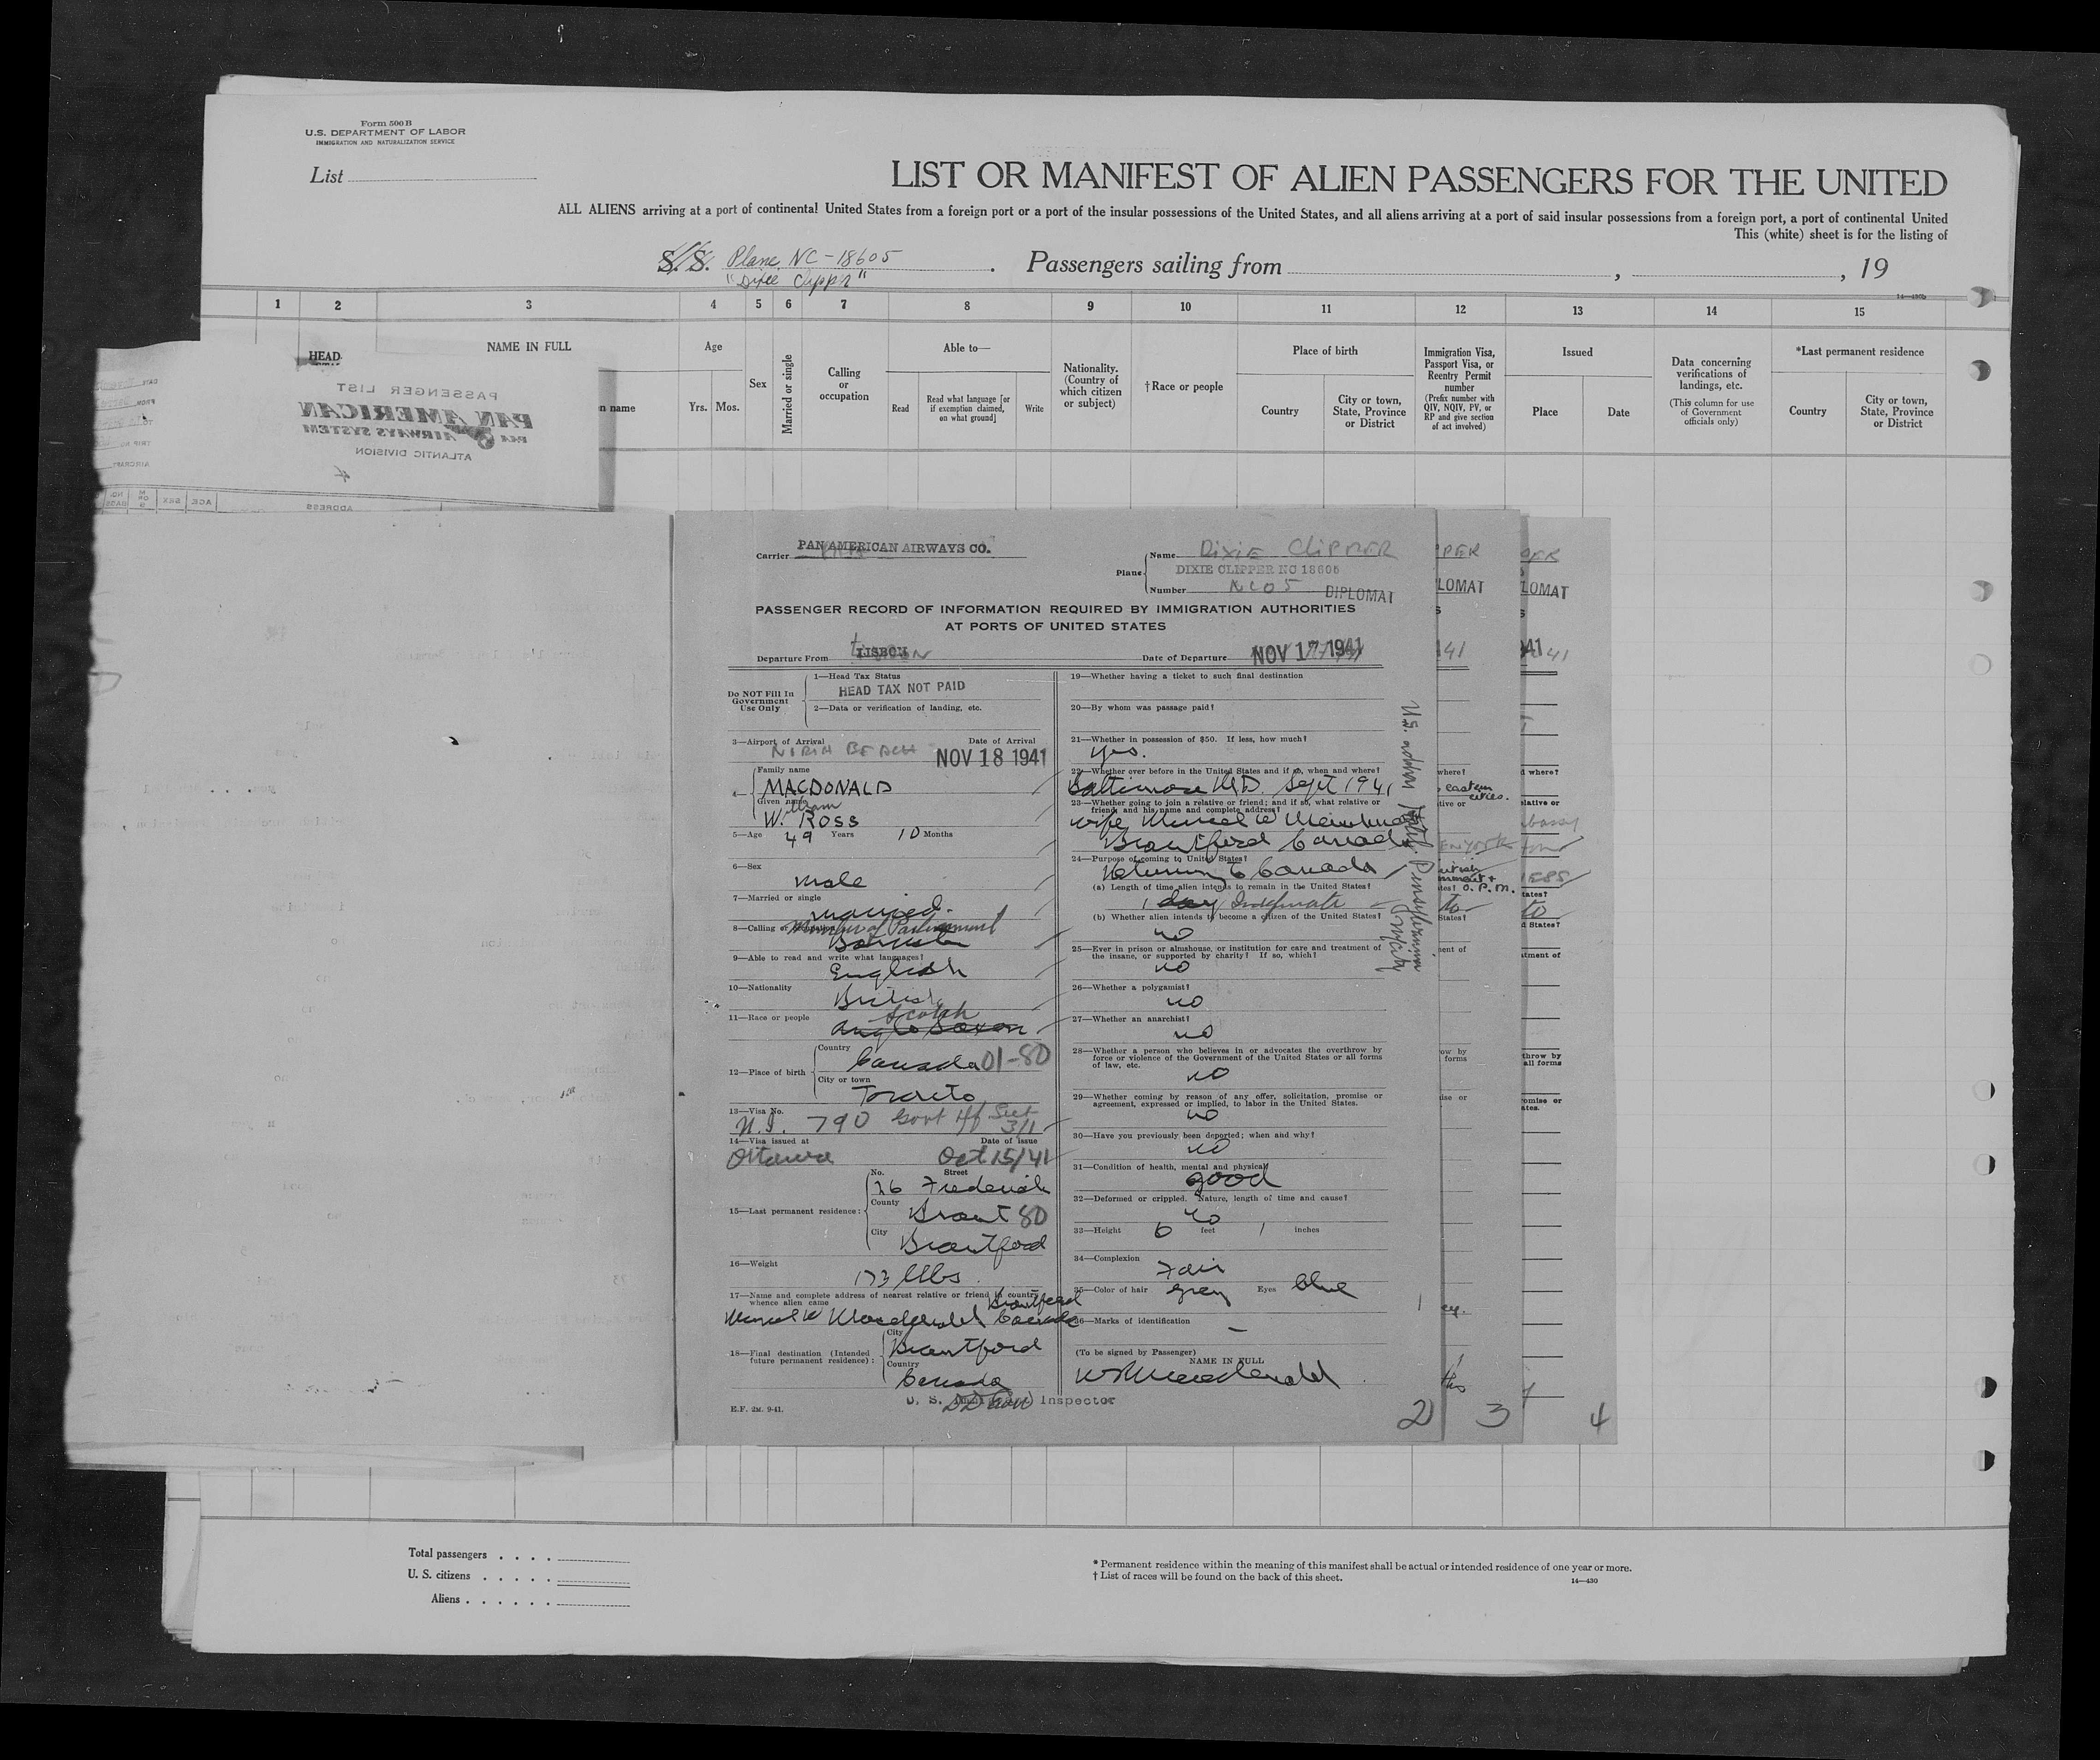 Form 500 B
U.S. DEPARTMENT OF LABOR
IMMIGRATION AND NATURALIZATION SERVICE
List
LIST OR MANIFEST OF ALIEN PASSENGERS FOR THE UNITED
ALL ALIENS arriving at a port of continental United States from a foreign port or a port of the insular possessions of the United States, and all aliens arriving at a port of said insular possessions from a foreign port, a port of continental United
This (white) sheet is for the listing of
S. S. Plane NC-18605
Passengers sailing from , , 19
14—430b
1 2 3 4 5 6 7 8 9 10 11 12 13 14 15
HEAD
NAME IN FULL
n name
Age
Yrs. Mos.
Sex
Married or single
Calling or occupation
Able to—
Read
Read what language [or if exemption claimed, on what ground]
Write
Nationality. (Country of which citizen or subject)
† Race or people
Place of birth
Country
City or town, State, Province or District
Immigration Visa, Passport Visa, or Reentry Permit number
(Prefix number with QIV, NQIV, PV, or RP and give section of act involved)
Issued
Place
Date
Data concerning verifications of landings, etc.
(This column for use of Government officials only)
*Last permanent residence
Country
City or town, State, Province or District
PASSENGER LIST
PAN AMERICAN
PAA AIRWAYS SYSTEM
ATLANTIC DIVISION
4
AIRCRAFT
AGE SEX
ADDRESS
Carrier PAN AMERICAN AIRWAYS CO.
Plane
Name DIXIE CLIPPER
DIXIE CLIPPER NC 18605
Number NC05
DIPLOMAT
PASSENGER RECORD OF INFORMATION REQUIRED BY IMMIGRATION AUTHORITIES
AT PORTS OF UNITED STATES
Departure From LISBON
Date of Departure NOV 17 1941
Do NOT Fill In
Government
Use Only
1—Head Tax Status
HEAD TAX NOT PAID
2—Data or verification of landing, etc.
3—Airport of Arrival
Date of Arrival
NOV 18 1941
4—
Family name
MACDONALD
Given name
William
W. ROSS
5—Age 49 Years 10 Months
6—Sex
Male
7—Married or single
married.
8—Calling or occupation
Member of Parliament
Barrister
9—Able to read and write what languages?
English
10—Nationality
British
11—Race or people
Scotch
Anglo Saxon
12—Place of birth
Country
Canada 01-80
City or town
Toronto
13—Visa No.
790 Govt Off Sect 3/1
14—Visa issued at
Date of issue
Ottawa Oct 15/41
15—Last permanent residence:
No. Street
26 Frederick
County
Brant 80
City
Brantford
16—Weight
173 lbs.
17—Name and complete address of nearest relative or friend in country
whence alien came
Brantford
Muriel W Macdonald Canada
18—Final destination (Intended
future permanent residence):
City
Brantford
Country
Canada
U. S. Inspector
E.F. 2M. 9-41.
19—Whether having a ticket to such final destination
20—By whom was passage paid?
21—Whether in possession of $50. If less, how much?
yes.
22—Whether ever before in the United States and if so, when and where?
Baltimore Md. Sept 1941
23—Whether going to join a relative or friend; and if so, what relative or
friend and his name and complete address?
wife Muriel W Macdonald
Brantford Canada
24—Purpose of coming to United States?
Returning to Canada
(a) Length of time alien intends to remain in the United States?
1 day Indefinite
(b) Whether alien intends to become a citizen of the United States?
no
25—Ever in prison or almshouse, or institution for care and treatment of
the insane, or supported by charity? If so, which?
no
26—Whether a polygamist?
no
27—Whether an anarchist?
no
28—Whether a person who believes in or advocates the overthrow by
force or violence of the Government of the United States or all forms
of law, etc.
no
29—Whether coming by reason of any offer, solicitation, promise or
agreement, expressed or implied, to labor in the United States.
no
30—Have you previously been deported; when and why?
no
31—Condition of health, mental and physical?
good
32—Deformed or crippled. Nature, length of time and cause?
no
33—Height 6 feet 1 inches
34—Complexion
Fair
35—Color of hair grey Eyes blue
36—Marks of identification
—
(To be signed by Passenger)
NAME IN FULL
W R Macdonald
U.S. address Hotel Pennsylvania
2
3
4
Total passengers . . . .
U. S. citizens . . . . .
Aliens . . . . . .
* Permanent residence within the meaning of this manifest shall be actual or intended residence of one year or more.
† List of races will be found on the back of this sheet.
14—430